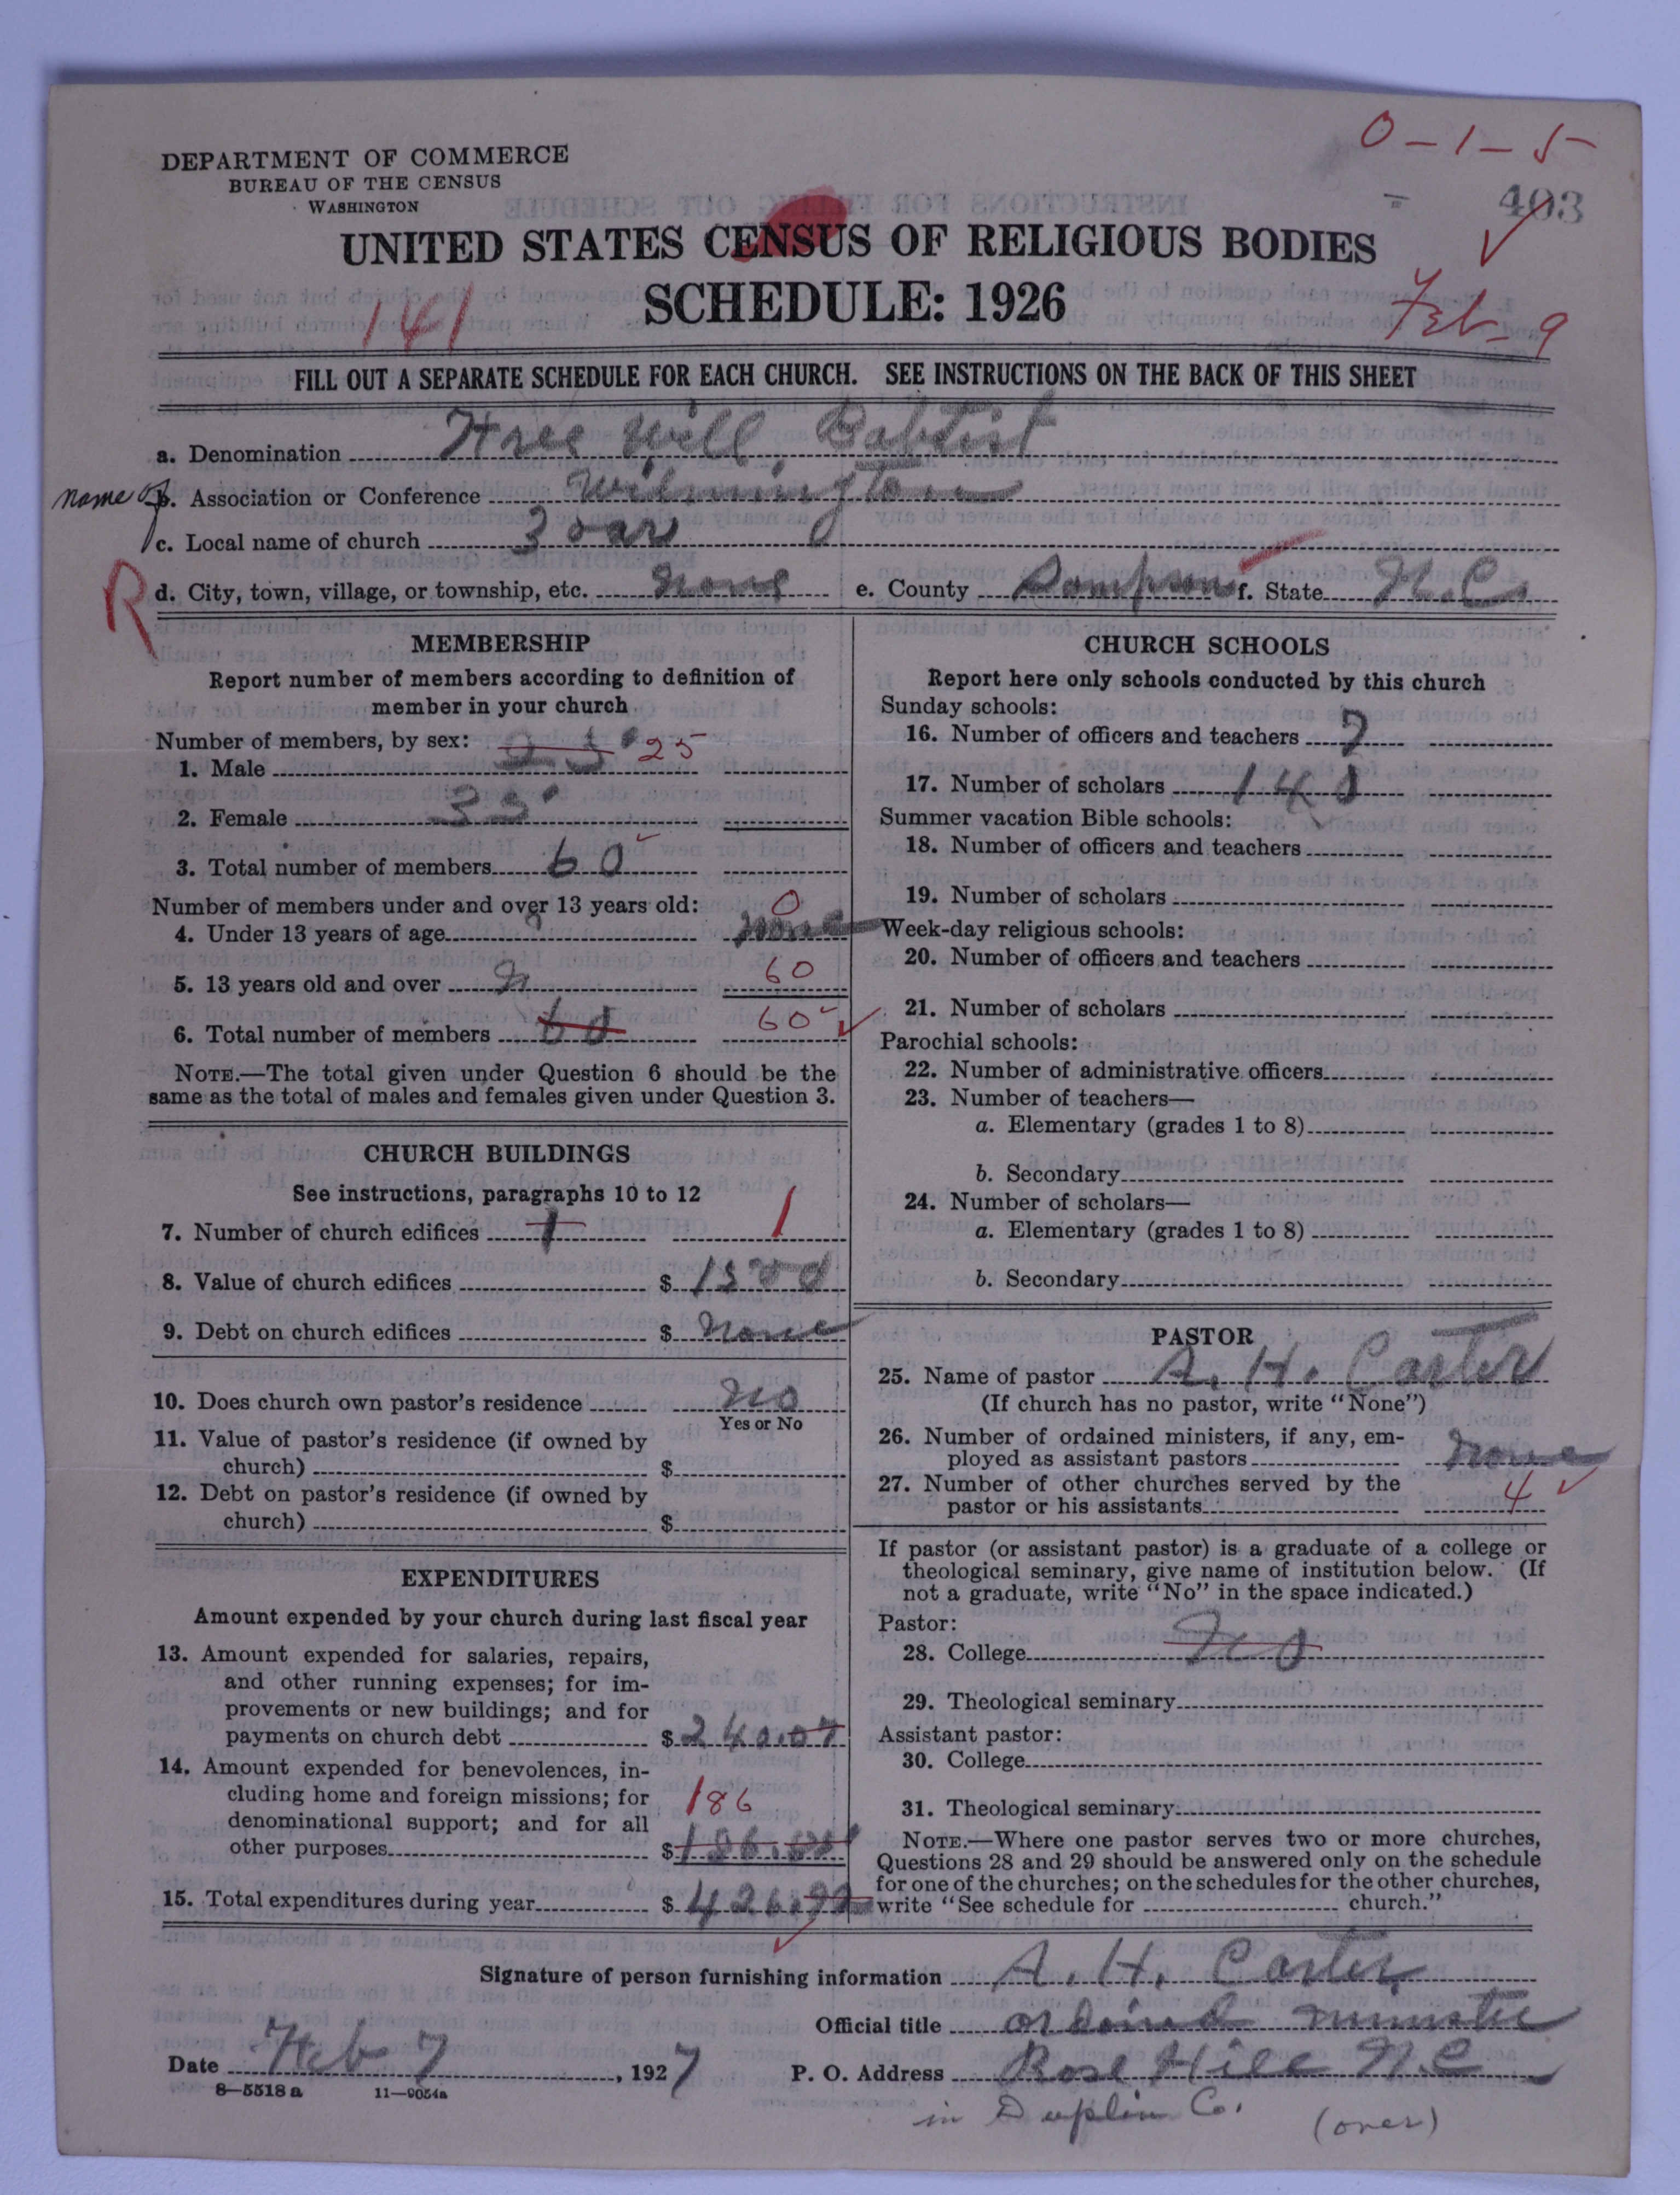 0-1-5
DEPARTMENT OF COMMERCE
BUREAU OF THE CENSUS
WASHINGTON
403
UNITED STATES CENSUS OF RELIGIOUS BODIES
SCHEDULE: 1926
141
Feb-9
FILL OUT A SEPARATE SCHEDULE FOR EACH CHURCH. SEE INSTRUCTIONS ON THE BACK OF THIS SHEET
a. Denomination Free Will Baptist
name of b. Association or Conference Wilmington
c. Local name of church Zoar
R d. City, town, village, or township, etc. none e. County Sampson f. State N.C.
MEMBERSHIP
Report number of members according to definition of
member in your church
Number of members, by sex:
1. Male 25 25
2. Female 35
3. Total number of members 60
Number of members under and over 13 years old: 0
4. Under 13 years of age none
5. 13 years old and over 60
6. Total number of members 60 60
NOTE.—The total given under Question 6 should be the
same as the total of males and females given under Question 3.
CHURCH BUILDINGS
See instructions, paragraphs 10 to 12
7. Number of church edifices 1 1
8. Value of church edifices $ 1500
9. Debt on church edifices $ none
10. Does church own pastor's residence No
Yes or No
11. Value of pastor's residence (if owned by
church) $
12. Debt on pastor's residence (if owned by
church) $
EXPENDITURES
Amount expended by your church during last fiscal year
13. Amount expended for salaries, repairs,
and other running expenses; for im-
provements or new buildings; and for
payments on church debt $ 240.07
14. Amount expended for benevolences, in-
cluding home and foreign missions; for 186
denominational support; and for all
other purposes $
15. Total expenditures during year $
CHURCH SCHOOLS
Report here only schools conducted by this church
Sunday schools:
16. Number of officers and teachers 7
17. Number of scholars 140
Summer vacation Bible schools:
18. Number of officers and teachers
19. Number of scholars
Week-day religious schools:
20. Number of officers and teachers
21. Number of scholars
Parochial schools:
22. Number of administrative officers
23. Number of teachers—
a. Elementary (grades 1 to 8)
b. Secondary
24. Number of scholars—
a. Elementary (grades 1 to 8)
b. Secondary
PASTOR
25. Name of pastor A. H. Carter
(If church has no pastor, write "None")
26. Number of ordained ministers, if any, em-
ployed as assistant pastors None
27. Number of other churches served by the
pastor or his assistants 4
If pastor (or assistant pastor) is a graduate of a college or
theological seminary, give name of institution below. (If
not a graduate, write "No" in the space indicated.)
Pastor:
28. College No
29. Theological seminary
Assistant pastor:
30. College
31. Theological seminary
NOTE.—Where one pastor serves two or more churches,
Questions 28 and 29 should be answered only on the schedule
for one of the churches; on the schedules for the other churches,
write "See schedule for church."
Signature of person furnishing information A. H. Carter
Official title ordained minister
Date Feb 7, 1927 P. O. Address Rose Hill N.C
8-5518 a 11-9054a
in Duplin Co. (over)